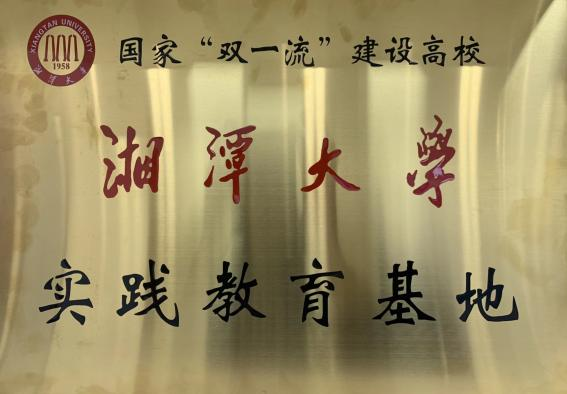 XIANGTAN UNIVERSITY
1958
湘潭大学
国家“双一流”建设高校
湘潭大學
实践教育基地